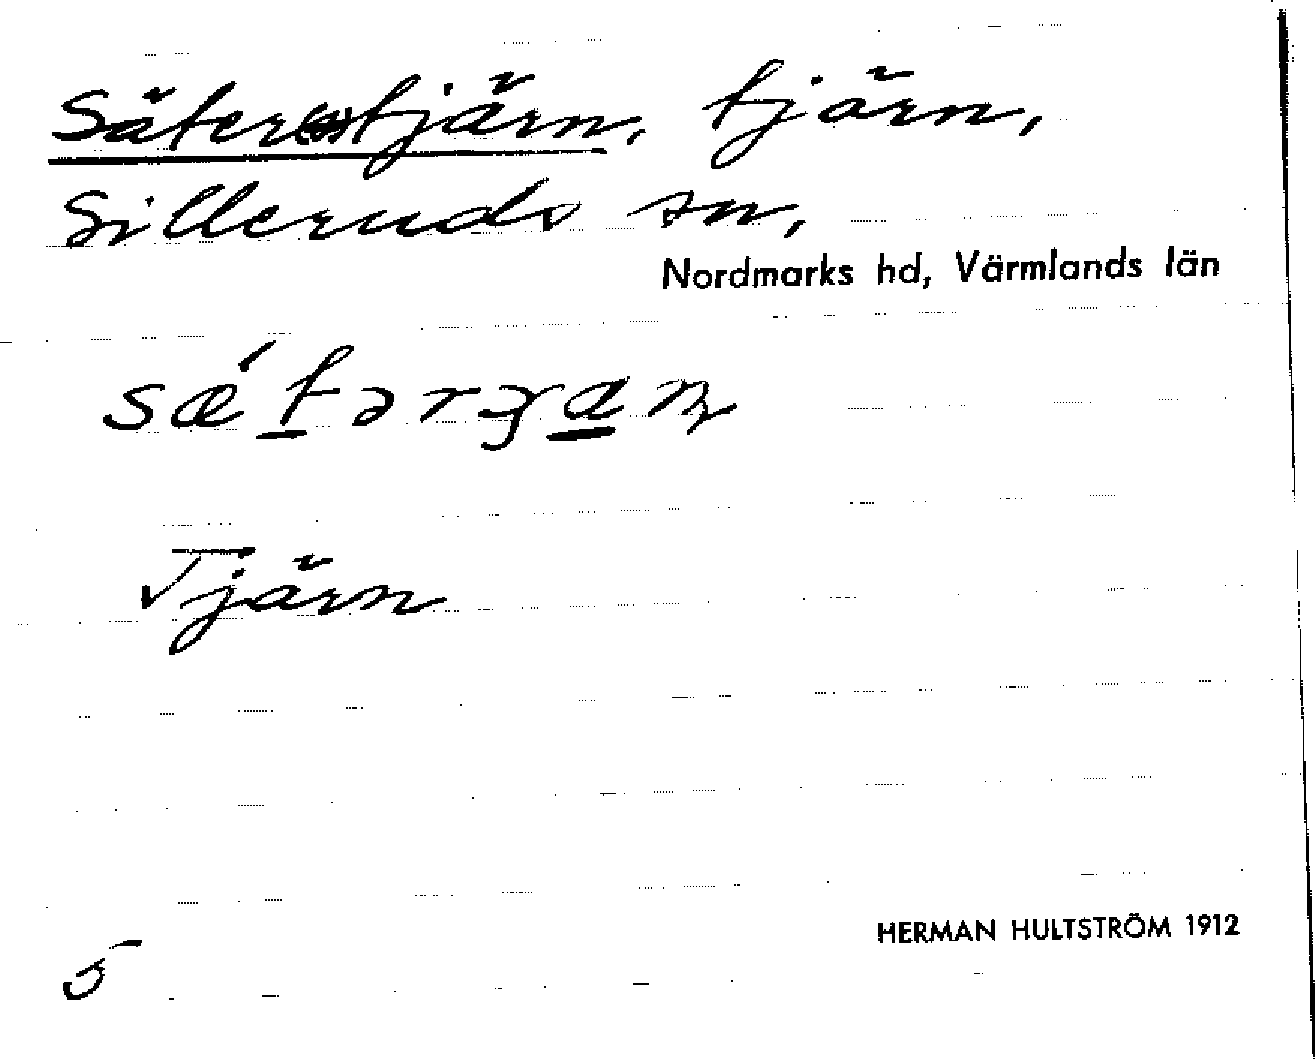 Säter(s)tjärn, tjärn,
Silleruds sn,
Nordmarks hd, Värmlands län
Tjärn
HERMAN HULTSTRÖM 1912
5